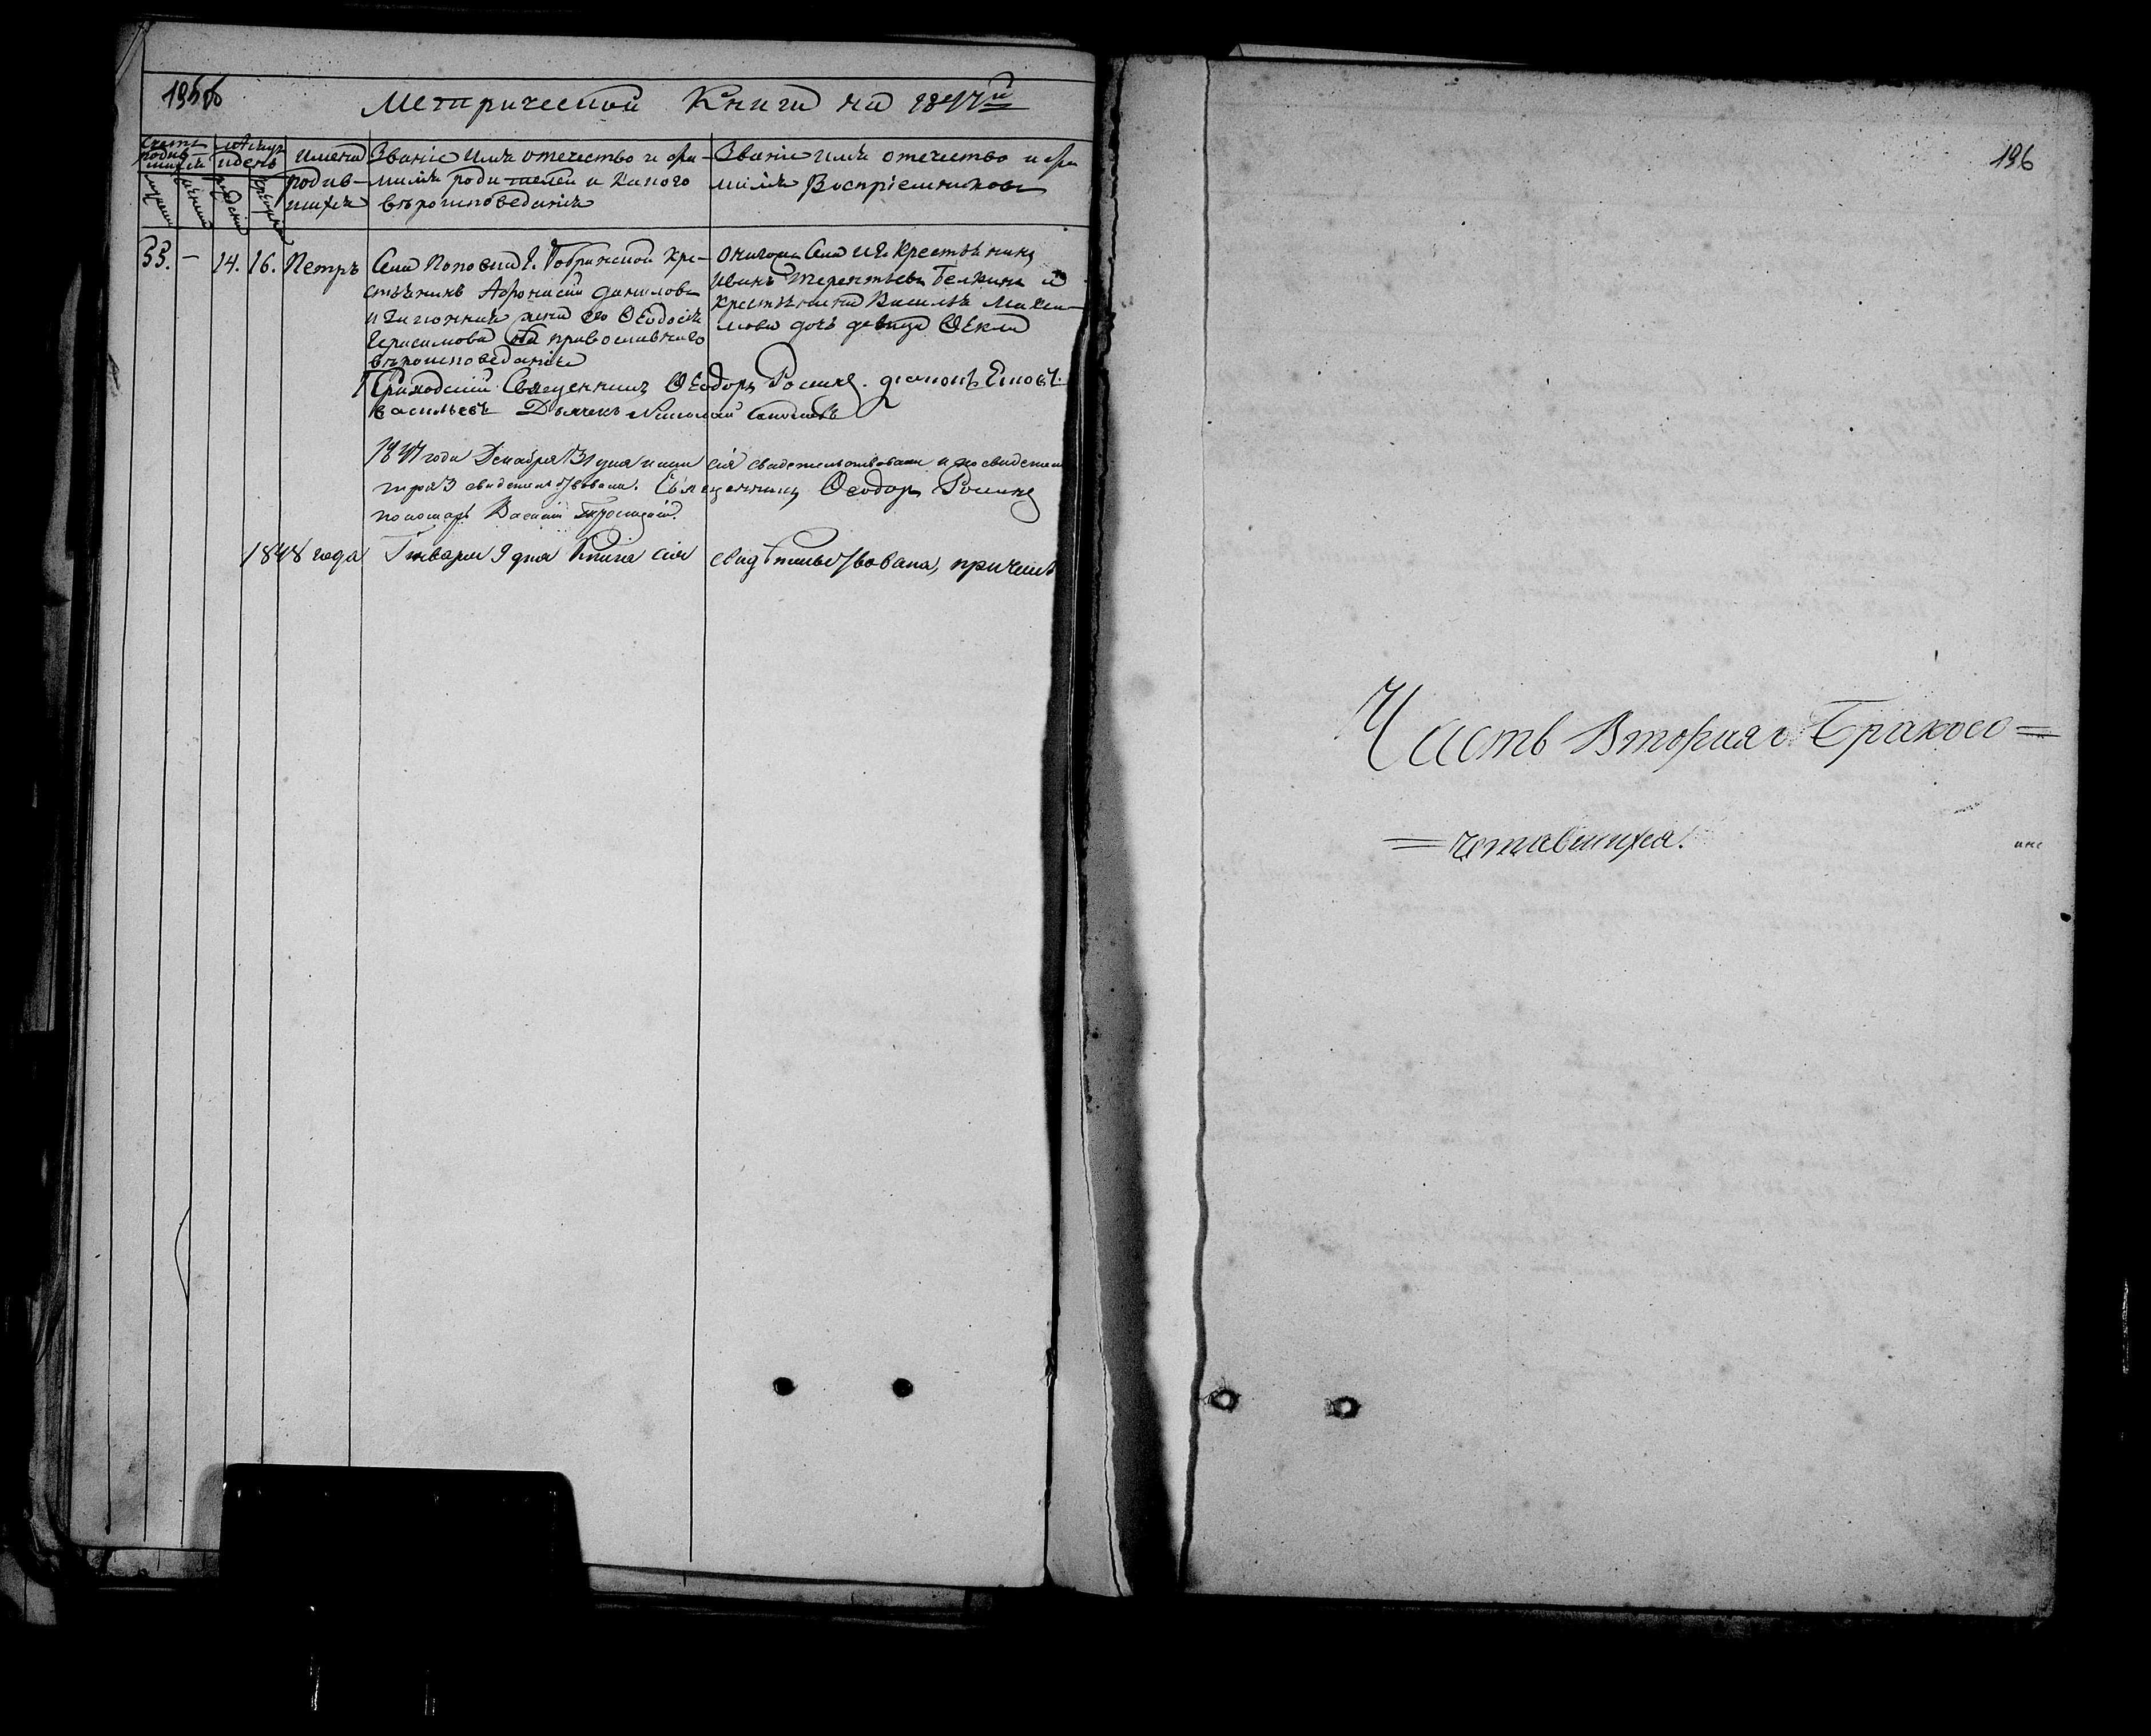 Метрической Книги на 1847й
Счетъ родив- шихся
Мѣсяцъ и день
Имена родив- шихся
Званіе имя отечество и фа- милія родителей и какого вѣроисповеданія
Званіе имя отечество и фа милія Воспріемниковъ
33. – 14. 16. Петръ
Села кре-
стьянинъ Афонасий Данилов
и законная жена его Ѳеодосія
Герасимова оба православнаго
вѣроисповеданія
Села крестьянинъ
Иванъ Терентьевъ Белкинъ и
крестьянина Василья Макси-
мова дочь девица Ѳекла
Приходский Священникъ Ѳеодоръ діаконъ
Васильевъ Дьячекъ Николай
1847 года Декабря 31 дня сія свидетельствована и
свидетельствована. Священникъ Ѳеодоръ
пономарь Василий
1848 года Генваря 9 дня Книга сия свидѣтельствована, причемъ
196
Часть Вторая о Бракосо=
=четавшихся.